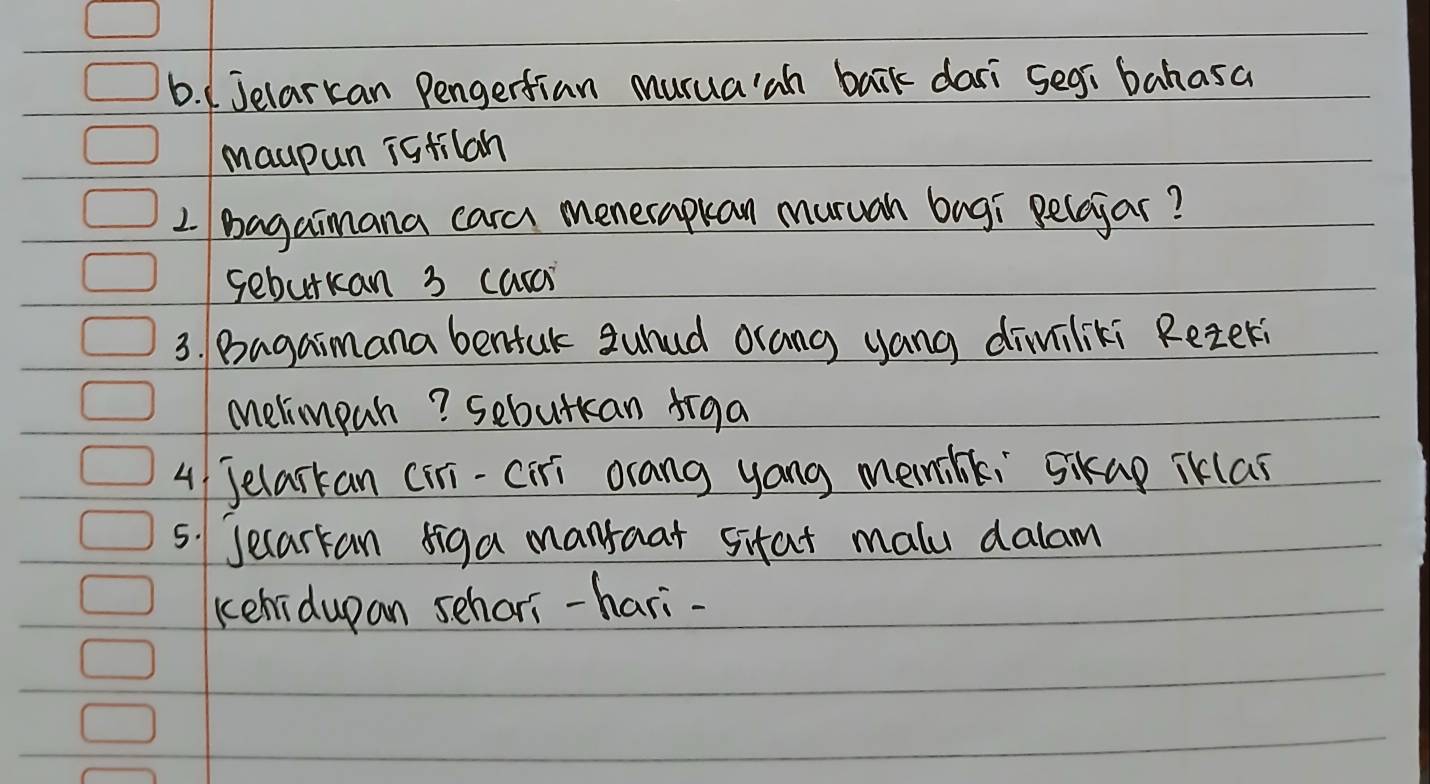 b. 1 Jelaskan Pengertian Murua'ah baik dari segi bahasa
maupun istilah
2. Bagaimana cara menerapkan muruah bagi pelajar?
sebutkan 3 cara
3. Bagaimana bentuk zuhud orang yang dimiliki Rezeki
melimpah ? sebutkan tiga
4. Jelaskan ciri-ciri orang yang memiliki sikap iklas
5. Jelaskan tiga manfaat sifat malu dalam
kehidupan sehari-hari-